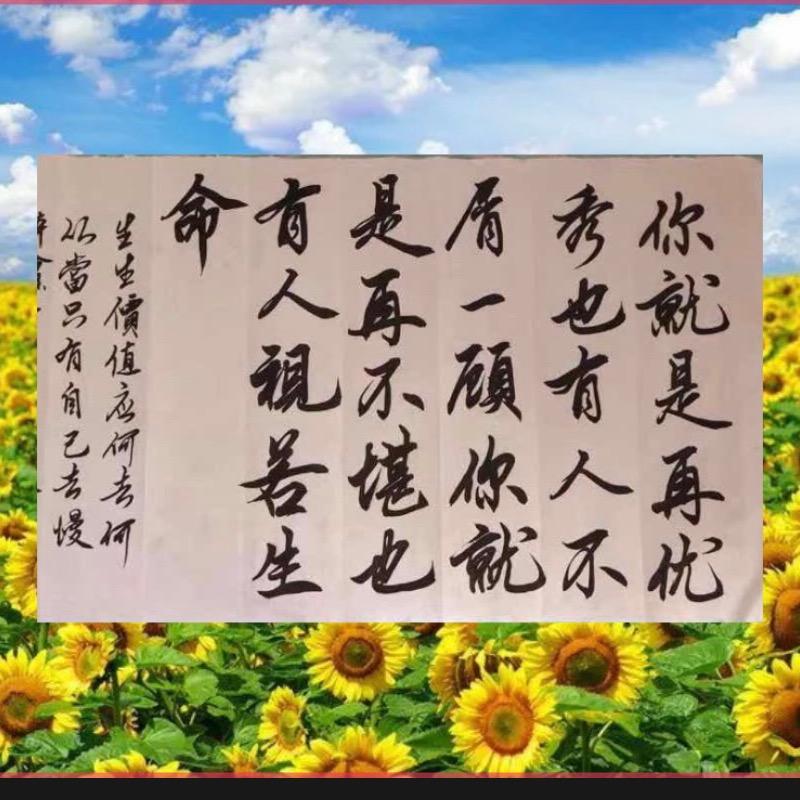 你就是再优
秀也有人不
屑一顾你就
是再不堪也
有人視若生
命
生生價值应何去何
以當只有自己去慢